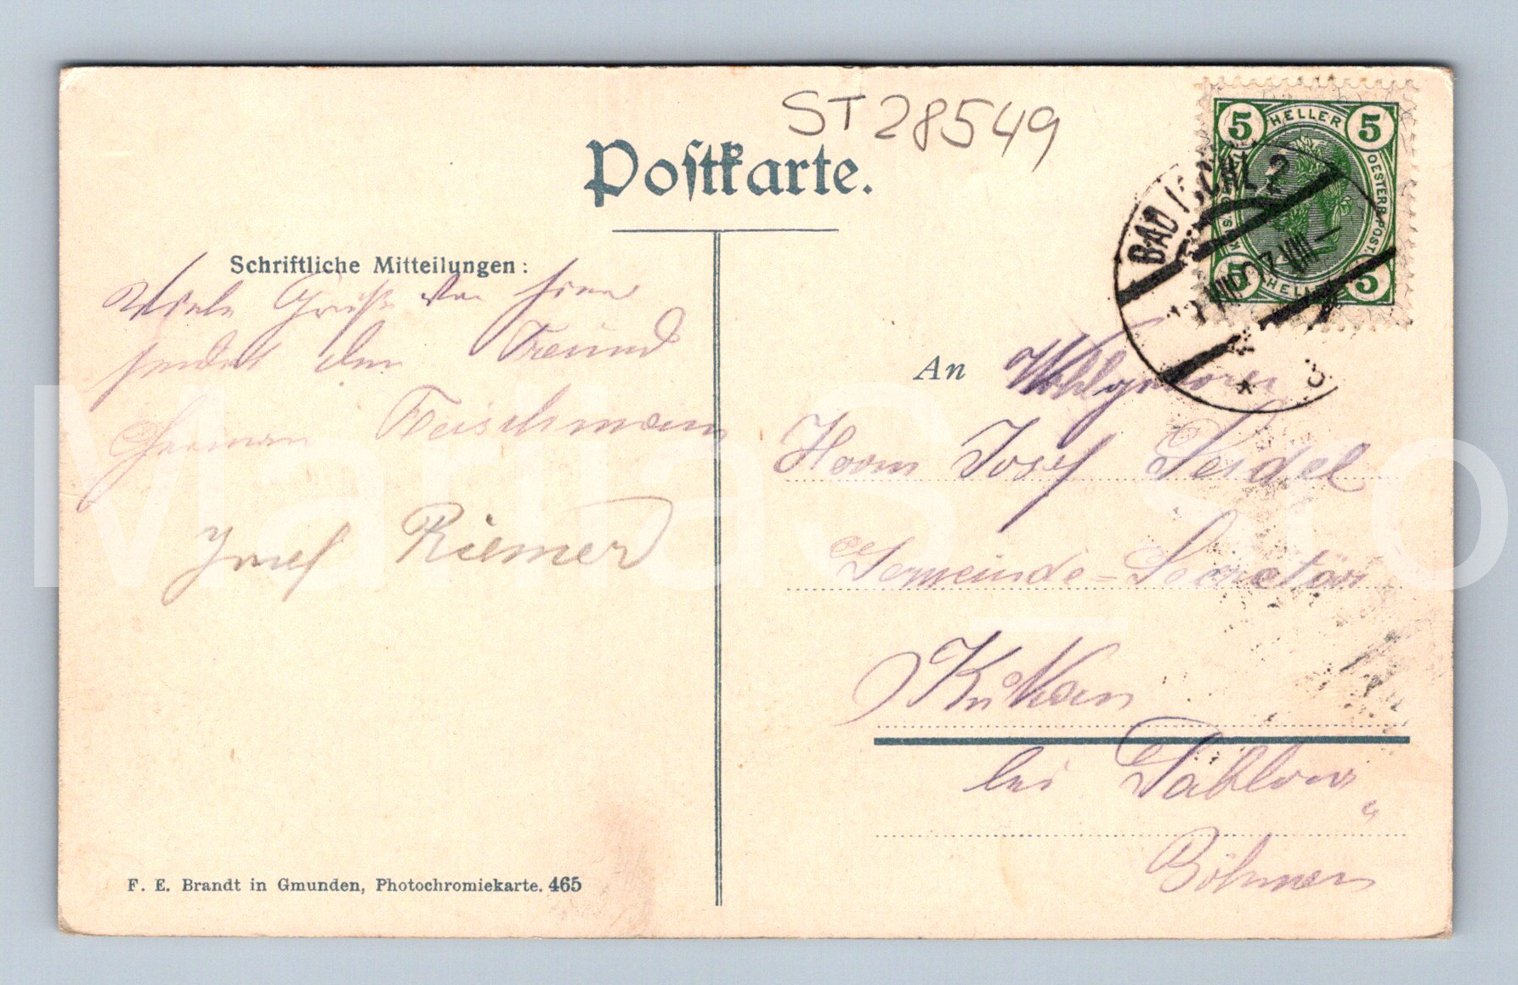 ST 28549
Postkarte.
5 HELLER 5
OESTERR. POST.
5 HELLER 5
BAD ISCHL 2
Schriftliche Mitteilungen:
Viele Grüße von hier
sendet dein Freund
Herman Fleischmann
Josef Riemer
An Wohlgeboren
Herrn Josef Seidel
Gemeinde=Secretär
Kukan
bei Gablonz
Böhmen
F. E. Brandt in Gmunden, Photochromiekarte. 465